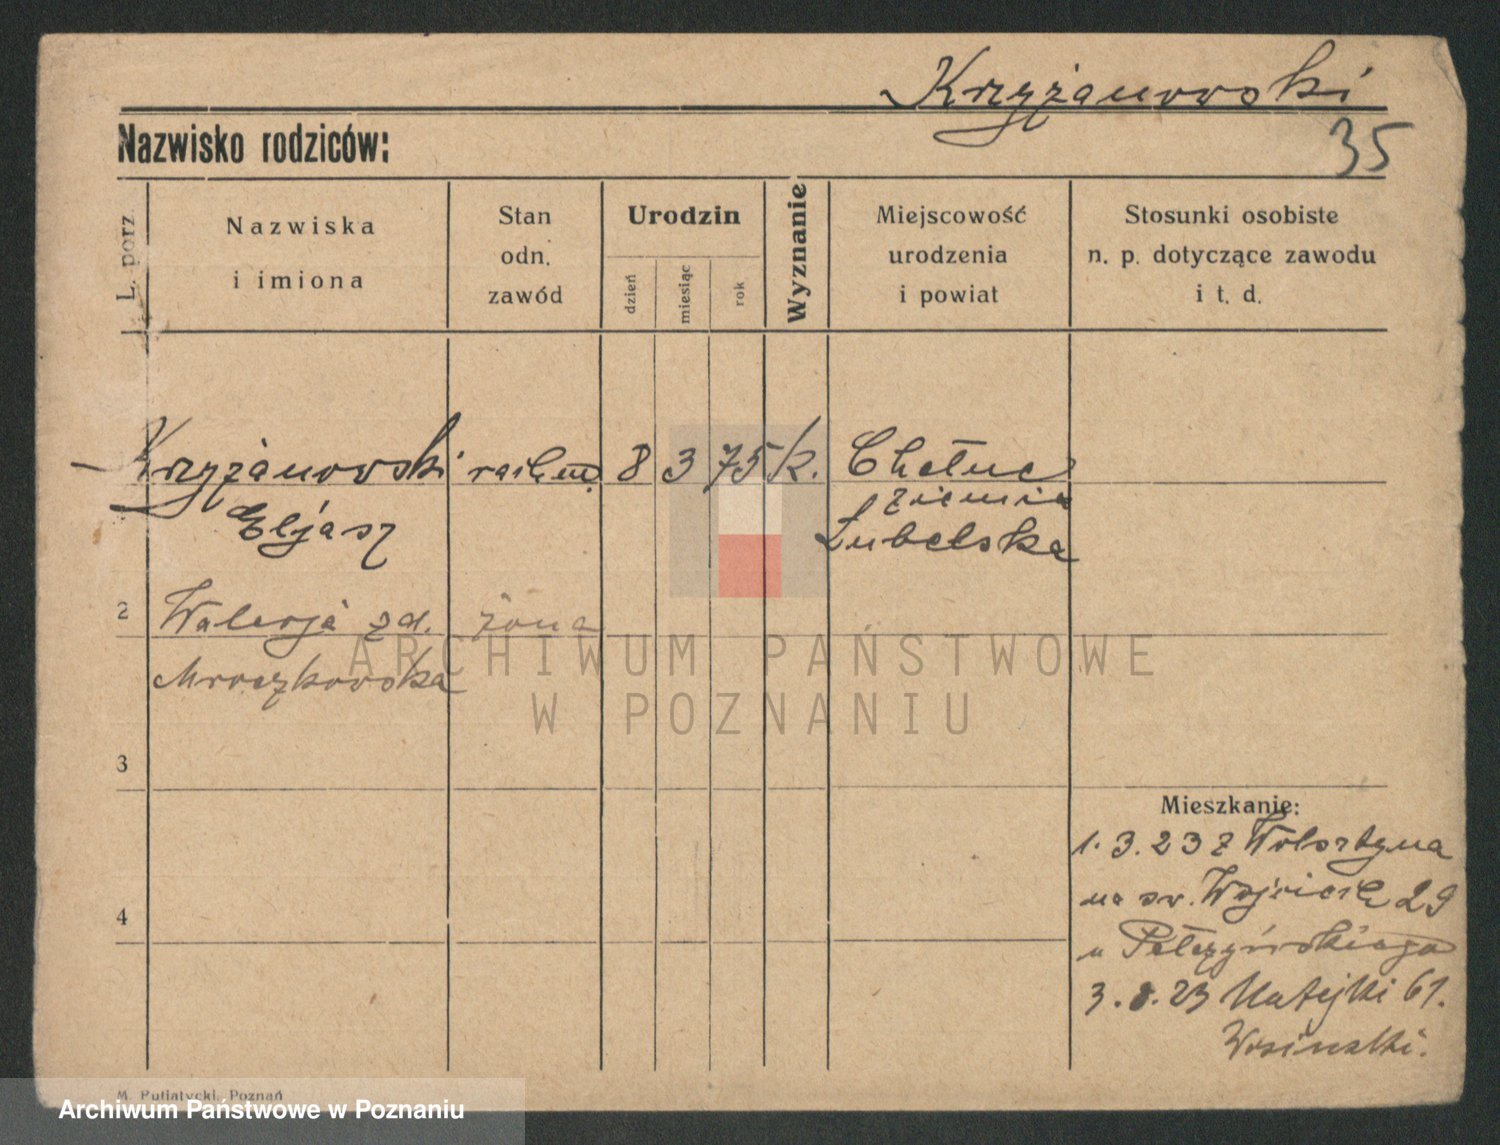 Krzyżanowski
35
Nazwisko rodziców:
L. porz.
Nazwiska
i imiona
Stan
odn.
zawód
Urodzin
dzień
miesiąc
rok
Wyznanie
Miejscowość
urodzenia
i powiat
Stosunki osobiste
n. p. dotyczące zawodu
i t. d.
Krzyżanowski 8 3 75 k.
Eljasz
ziemia
Lubelska
2 Walerja zd. żona
Mroczkowska
3
4
Mieszkanie:
1. 3. 23 z Wolsztyna
na św. Wojciech 29
u
3. 8. 23 Matejki 61.
M. Putiatycki, Poznań
ARCHIWUM PAŃSTWOWE
W POZNANIU
Archiwum Państwowe w Poznaniu